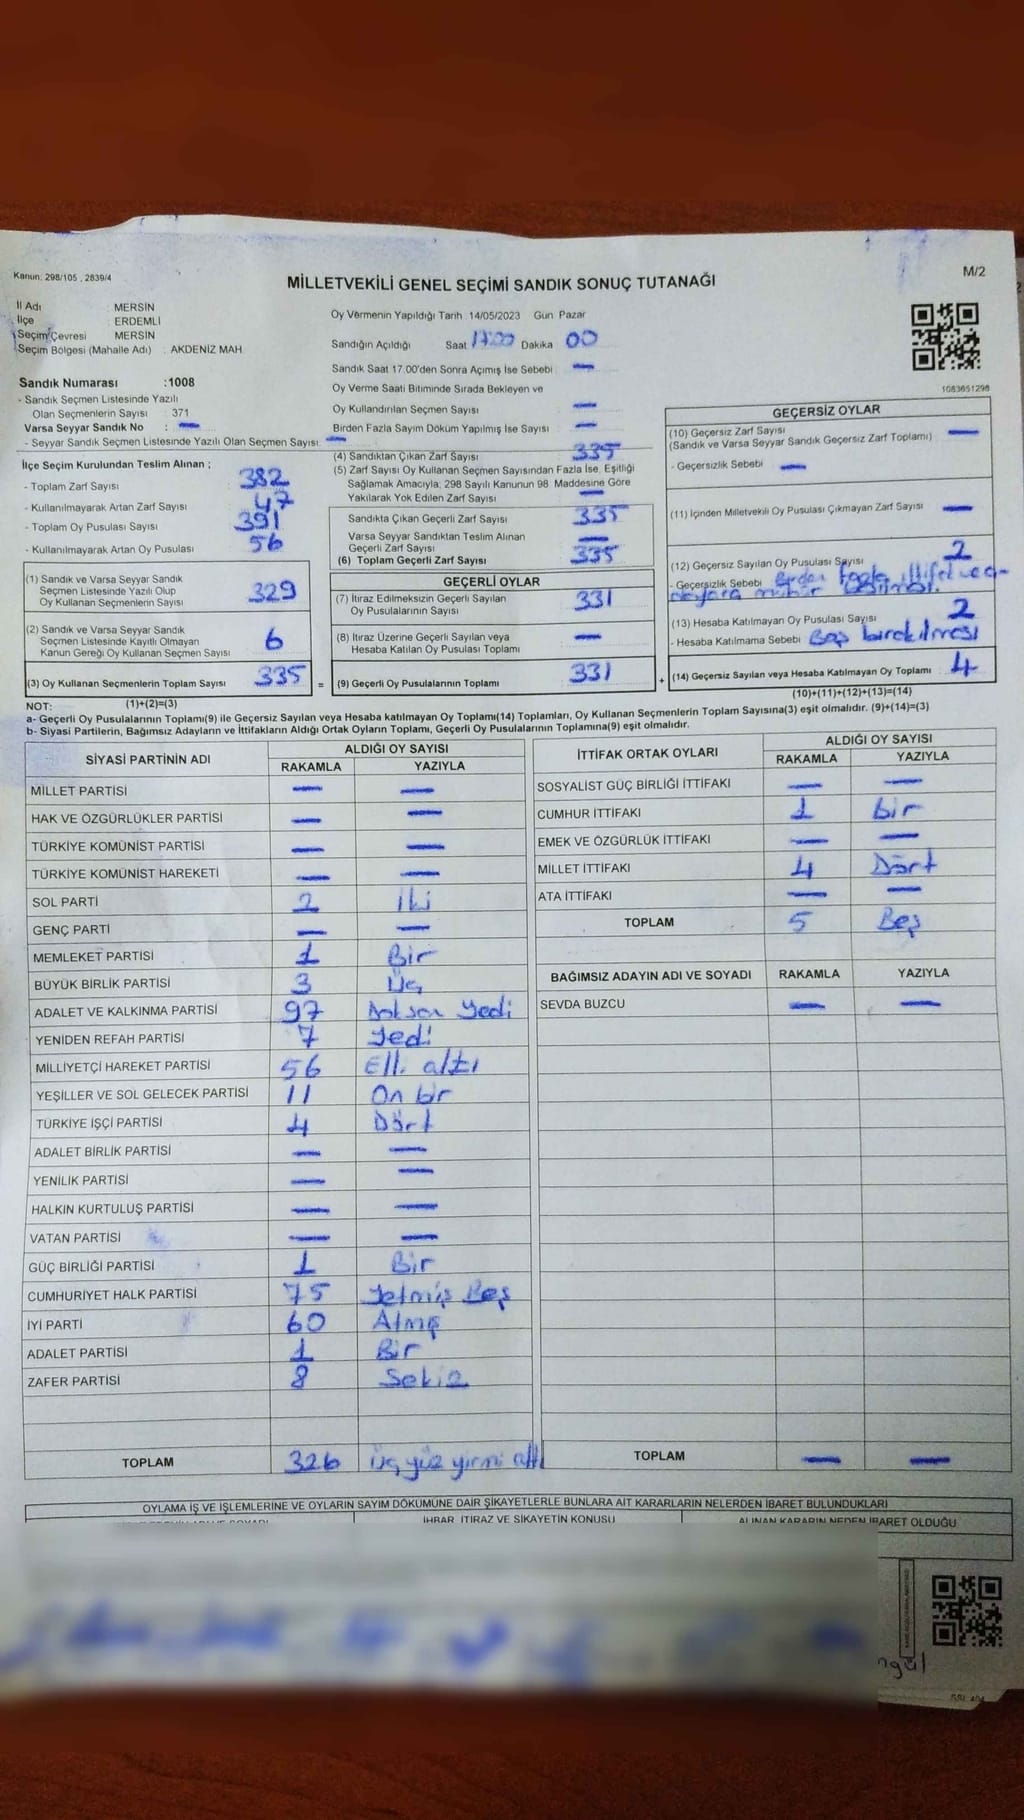 Kanun: 298/105 , 2839/4
MİLLETVEKİLİ GENEL SEÇİMİ SANDIK SONUÇ TUTANAĞI
M/2
İl Adı : MERSİN
İlçe : ERDEMLİ
Seçim Çevresi : MERSİN
Seçim Bölgesi (Mahalle Adı) : AKDENİZ MAH.
Sandık Numarası :1008
- Sandık Seçmen Listesinde Yazılı
Olan Seçmenlerin Sayısı : 371
Varsa Seyyar Sandık No : —
- Seyyar Sandık Seçmen Listesinde Yazılı Olan Seçmen Sayısı: —
İlçe Seçim Kurulundan Teslim Alınan ;
- Toplam Zarf Sayısı : 382
- Kullanılmayarak Artan Zarf Sayısı : 47
- Toplam Oy Pusulası Sayısı : 391
- Kullanılmayarak Artan Oy Pusulası : 56
(1) Sandık ve Varsa Seyyar Sandık
Seçmen Listesinde Yazılı Olup
Oy Kullanan Seçmenlerin Sayısı : 329
(2) Sandık ve Varsa Seyyar Sandık
Seçmen Listesinde Kayıtlı Olmayan
Kanun Gereği Oy Kullanan Seçmen Sayısı : 6
(3) Oy Kullanan Seçmenlerin Toplam Sayısı : 335
Oy Vermenin Yapıldığı Tarih :14/05/2023 Gün: Pazar
Sandığın Açıldığı Saat 17:00 Dakika 00
Sandık Saat 17.00'den Sonra Açımış İse Sebebi : —
Oy Verme Saati Bitiminde Sırada Bekleyen ve
Oy Kullandırılan Seçmen Sayısı : —
Birden Fazla Sayım Döküm Yapılmış İse Sayısı : —
(4) Sandıktan Çıkan Zarf Sayısı : 335
(5) Zarf Sayısı Oy Kullanan Seçmen Sayısından Fazla İse, Eşitliği
Sağlamak Amacıyla; 298 Sayılı Kanunun 98. Maddesine Göre
Yakılarak Yok Edilen Zarf Sayısı : —
Sandıkta Çıkan Geçerli Zarf Sayısı : 335
Varsa Seyyar Sandıktan Teslim Alınan
Geçerli Zarf Sayısı : —
(6) Toplam Geçerli Zarf Sayısı : 335
GEÇERLİ OYLAR
(7) İtiraz Edilmeksizin Geçerli Sayılan
Oy Pusulalarının Sayısı : 331
(8) İtiraz Üzerine Geçerli Sayılan veya
Hesaba Katılan Oy Pusulası Toplamı : —
= (9) Geçerli Oy Pusulalarının Toplamı : 331
1083651298
GEÇERSİZ OYLAR
(10) Geçersiz Zarf Sayısı : —
(Sandık ve Varsa Seyyar Sandık Geçersiz Zarf Toplamı)
- Geçersizlik Sebebi : —
(11) İçinden Milletvekili Oy Pusulası Çıkmayan Zarf Sayısı : —
(12) Geçersiz Sayılan Oy Pusulası Sayısı : 2
- Geçersizlik Sebebi : Birden fazla ittifak
mühür
(13) Hesaba Katılmayan Oy Pusulası Sayısı : 2
- Hesaba Katılmama Sebebi : Boş bırakılması
+ (14) Geçersiz Sayılan veya Hesaba Katılmayan Oy Toplamı : 4
NOT: (1)+(2)=(3)
(10)+(11)+(12)+(13)=(14)
a- Geçerli Oy Pusulalarının Toplamı(9) ile Geçersiz Sayılan veya Hesaba katılmayan Oy Toplamı(14) Toplamları, Oy Kullanan Seçmenlerin Toplam Sayısına(3) eşit olmalıdır. (9)+(14)=(3)
b- Siyasi Partilerin, Bağımsız Adayların ve İttifakların Aldığı Ortak Oyların Toplamı, Geçerli Oy Pusulalarının Toplamına(9) eşit olmalıdır.
SİYASİ PARTİNİN ADI ALDIĞI OY SAYISI
RAKAMLA YAZIYLA
MİLLET PARTİSİ — —
HAK VE ÖZGÜRLÜKLER PARTİSİ — —
TÜRKİYE KOMÜNİST PARTİSİ — —
TÜRKİYE KOMÜNİST HAREKETİ — —
SOL PARTİ 2 İki
GENÇ PARTİ — —
MEMLEKET PARTİSİ 1 Bir
BÜYÜK BİRLİK PARTİSİ 3 Üç
ADALET VE KALKINMA PARTİSİ 97 Doksan Yedi
YENİDEN REFAH PARTİSİ 7 Yedi
MİLLİYETÇİ HAREKET PARTİSİ 56 Elli altı
YEŞİLLER VE SOL GELECEK PARTİSİ 11 On bir
TÜRKİYE İŞÇİ PARTİSİ 4 Dört
ADALET BİRLİK PARTİSİ — —
YENİLİK PARTİSİ — —
HALKIN KURTULUŞ PARTİSİ — —
VATAN PARTİSİ — —
GÜÇ BİRLİĞİ PARTİSİ 1 Bir
CUMHURİYET HALK PARTİSİ 75 Yetmiş Beş
İYİ PARTİ 60 Atmış
ADALET PARTİSİ 1 Bir
ZAFER PARTİSİ 8 Sekiz
TOPLAM 326 üç yüz yirmi altı
İTTİFAK ORTAK OYLARI ALDIĞI OY SAYISI
RAKAMLA YAZIYLA
SOSYALİST GÜÇ BİRLİĞİ İTTİFAKI — —
CUMHUR İTTİFAKI 1 bir
EMEK VE ÖZGÜRLÜK İTTİFAKI — —
MİLLET İTTİFAKI 4 Dört
ATA İTTİFAKI — —
TOPLAM 5 Beş
BAĞIMSIZ ADAYIN ADI VE SOYADI RAKAMLA YAZIYLA
SEVDA BUZCU — —
TOPLAM — —
OYLAMA İŞ VE İŞLEMLERİNE VE OYLARIN SAYIM DÖKÜMÜNE DAİR ŞİKAYETLERLE BUNLARA AİT KARARLARIN NELERDEN İBARET BULUNDUKLARI
İHBAR, İTİRAZ VE ŞİKAYETİN KONUSU ALINAN KARARIN NEDEN İBARET OLDUĞU